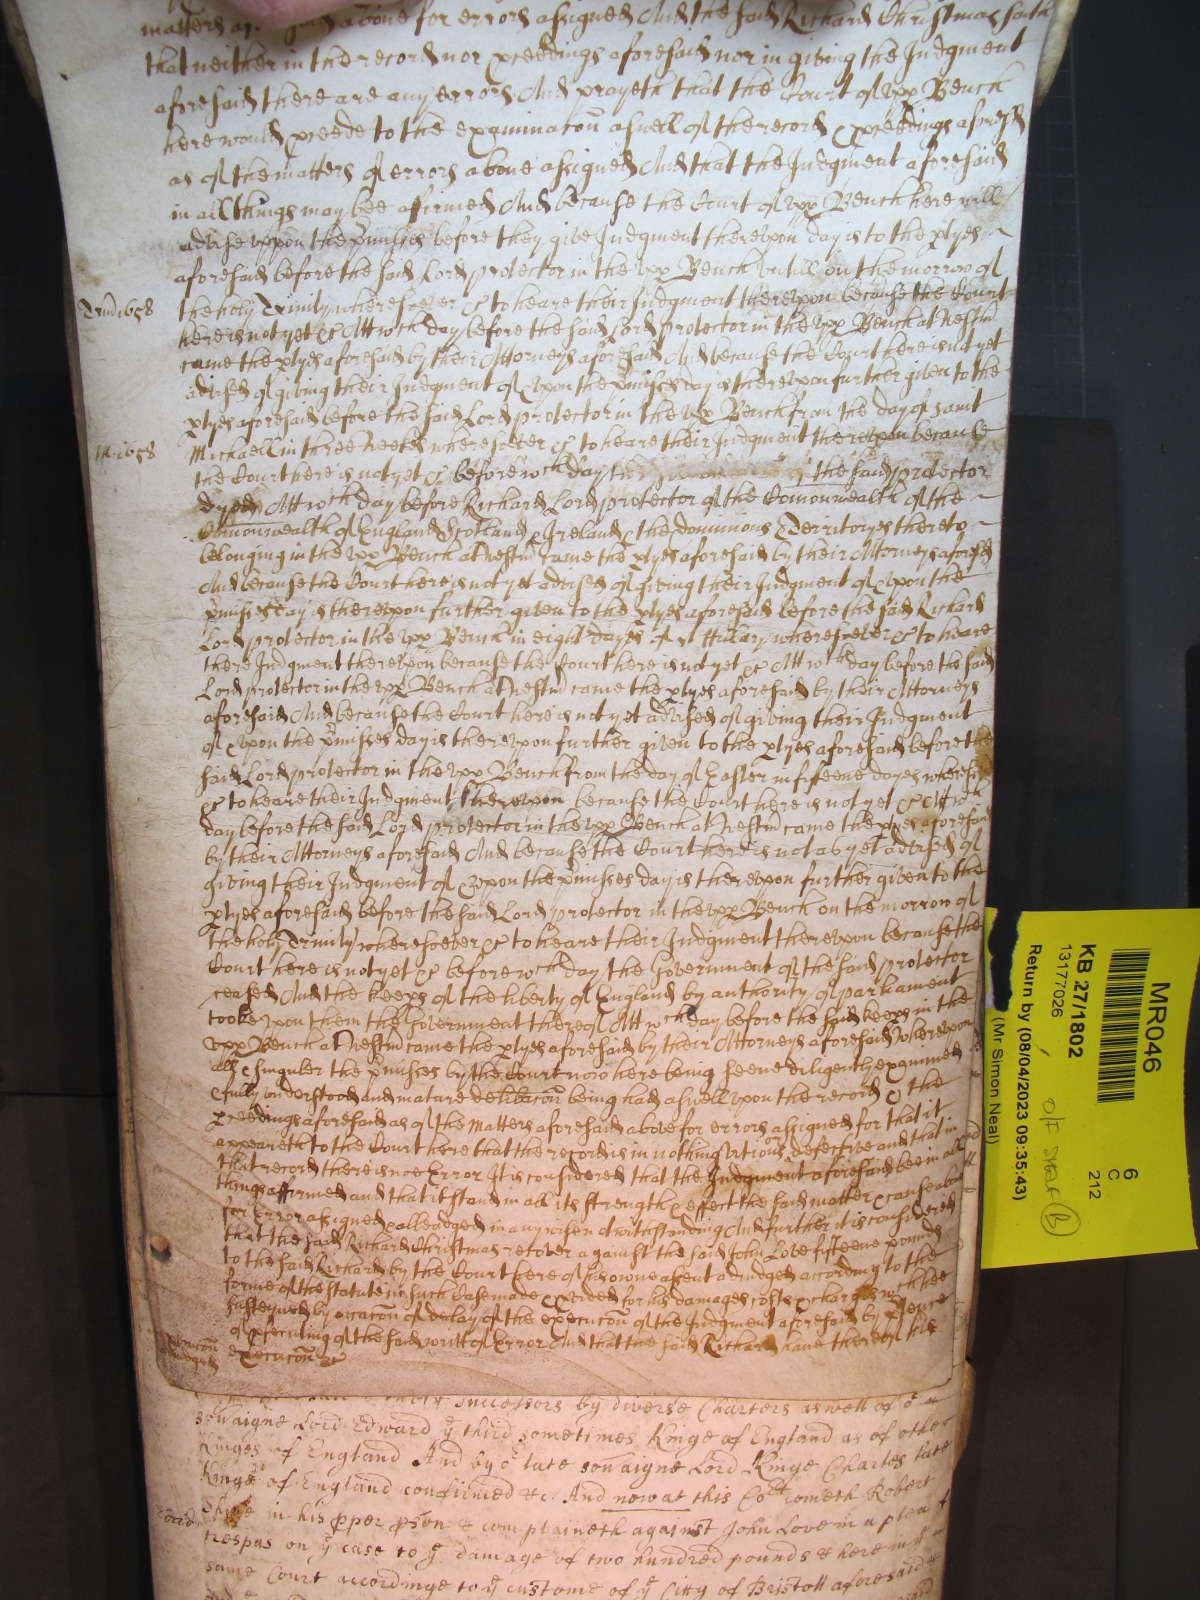 matters above for errors assigned And the said Richard Christmas saith
that neither in the record nor pceedings aforesaid nor in giving the Judgment
aforesaid there are any errors And prayeth that the Court of vpp Bench
here would pceede to the examinacon aswell of the record & pceedings aforesd
as of the matters of errors above assigned And that the Judgment aforesaid
in all things may bee affirmed And because the Court of vpp Bench here will
advise vppon the pmisses before they give Judgment therevpon day is to the ptyes
aforesaid before the said Lord protector in the vpp Bench vntill on the morrow of
Trin 1658
the holy Trinity wheresoever &c to heare their Judgment therevpon because the Court
here is not yet &c Att wch day before the said Lord protector in the vpp Bench at Westm
came the ptyes aforesaid by their Attorneys aforesaid And because the Court here is not yet
advised of giving their Judgment of & vpon the pmisses day is therevpon further given to the
ptyes aforesaid before the said Lord protector in the vpp Bench from the day of Saint
Mi 1658
Michaell in three weekes wheresoever &c to heare their Judgment therevpon because
the Court here is not yet &c before wch day the said protector
dyed Att wch day before Richard Lord protector of the Comonwealth of the
Comonwealth of England Scotland & Ireland & the dominions & Territoryes thereto
belonging in the vpp Bench at Westm came the ptyes aforesaid by their Attorneys aforesd
And because the Court here is not yet advised of giving their Judgment of & vpon the
pmisses day is therevpon further given to the ptyes aforesaid before the said Richard
Lord protector in the vpp Bench in eight dayes of st Hillary wheresoever &c to heare
there Judgment therevpon because the Court here is not yet &c Att wch day before the said
Lord protector in the vpp Bench at Westm came the ptyes aforesaid by their Attorneys
aforesaid And because the Court here is not yet advised of giving their Judgment
of & vpon the pmisses day is therevpon further given to the ptyes aforesaid before the
said Lord protector in the vpp Bench from the day of Easter in fifteene dayes
&c to heare their Judgment therevpon because the Court here is not yet &c Att wch
day before the said Lord protector in the vpp Bench at Westm came the ptyes aforesaid
by their Attorneys aforesaid And because the Court here is not as yet advised of
giving their Judgment of & vpon the pmisses day is therevpon further given to the
ptyes aforesaid before the said Lord protector in the vpp Bench on the morrow of
the holy Trinity wheresoever &c to heare their Judgment therevpon because the
Court here is not yet &c before wch day the Government of the said protector
ceased And the keeps of the liberty of England by authority of parliament
tooke vpon them the Government thereof Att wch day before the said keeps in the
vpp Bench at Westm came the ptyes aforesaid by their Attorneys aforesaid Wherevpon
all & singuler the pmisses by the Court now here being seene diligently examined
& fully vnderstood and mature delibacon being had aswell vpon the record & the
pceedings aforesaid as of the matters aforesaid above for errors assigned for that it
appeareth to the Court here that the record is in nothing vitious or defective and that in
that record there is noe Error It is considered that the Judgment aforesaid bee in all
things affirmed and that it stand in all its strength & effect the said matter & cause above
for Error assigned & alleadged in any wise notwithstanding And further it is considered
that the said Richard Christmas recover against the said John Love fifteene pounds
to the said Richard by the Court here of his owne assent adiudged according to the
forme of the statute in such case made & pvided for his damages costs & charges wch hee
susteyned by occacon of delay of the execucon of the Judgment aforesaid by ptence
of psecuting of the said writt of Error And that the said Richard have thereof his
execucon &c
successors by diverse Charters aswell of or
sovraigne Lord Edward ye third sometimes Kinge of England as of other
Kinges of England And by or late sovraigne Lord Kinge Charles late
Kinge of England confirmed &c. And now at this Cort cometh Robert
in his pper pson & complaineth against John Love in a plea of
trespas on ye case to ye damage of two hundred pounds & here in ye
same Court accordinge to ye custome of ye Citty of Bristoll aforesaid
MR046
6
C
212
KB 27/1802
13177026
Return by (08/04/2023 09:35:43)
(Mr Simon Neal)